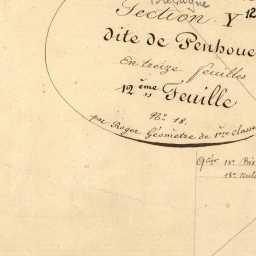 Bretagne
Section Y 12
dite de Penhoue
En treize feuilles
12ème Feuille
No 18.
par Roger Géomètre de 1ère classe
18e